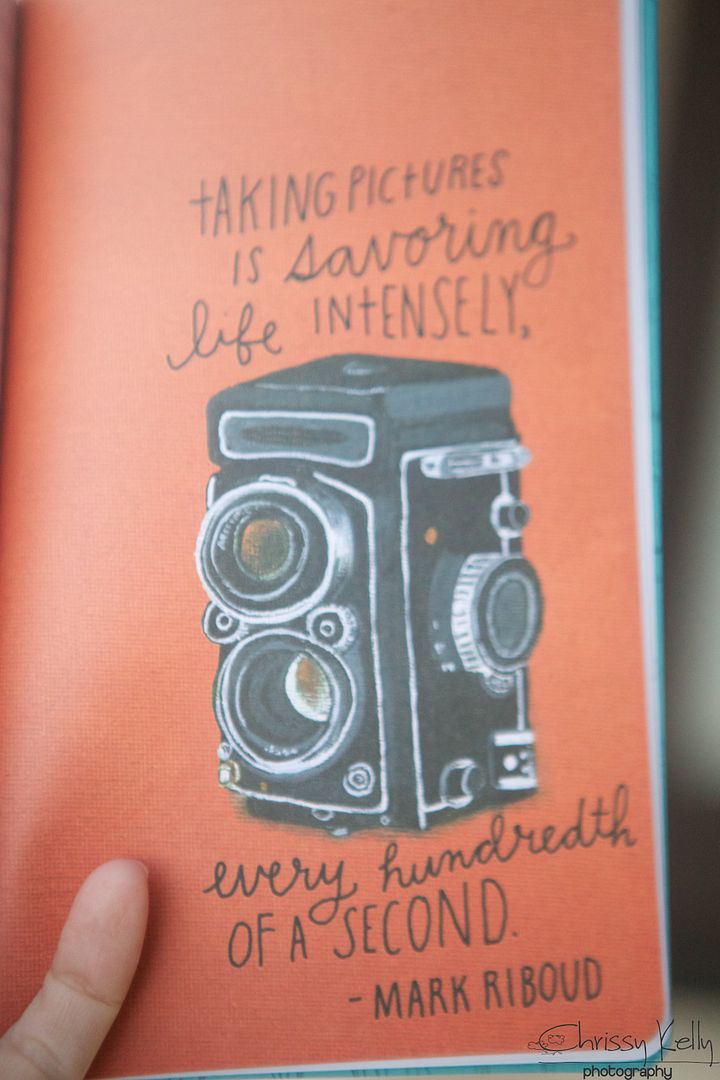 tAKING PICtURES
IS savoring
life INtENSELY,
every hundredth
OF A SECOND.
-MARK RIBOUD
Chrissy Kelly
photography